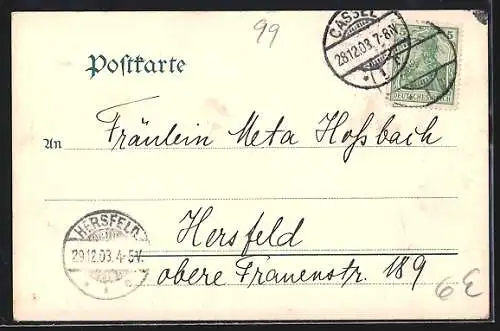 99
CASSEL
28.12.03.7-8V.
*1 f
5
DEUTSCHES REICH
Postkarte
An Fräulein Meta Hoßbach
HERSFELD
29.12.03.4-5V.
* 1 c
Hersfeld
obere Frauenstr. 189
6E